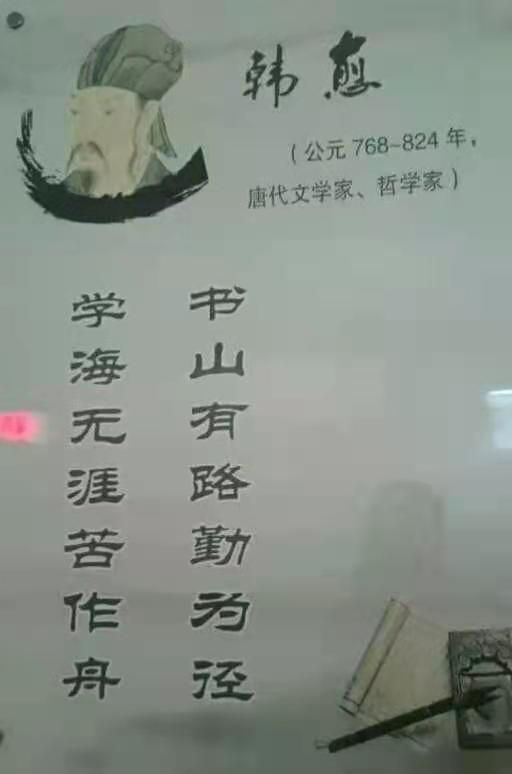 韩愈
（公元 768~824 年，
唐代文学家、哲学家）
书山有路勤为径
学海无涯苦作舟